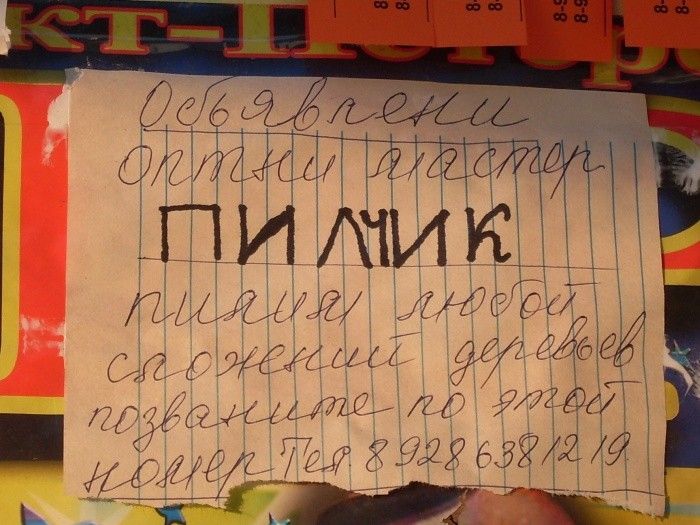 кт-Петерб
Обьявлени
оптни мастер
ПИЛЧИК
пилим любой
сложений деревьев
позваните по этой
номер Тел 89286381219